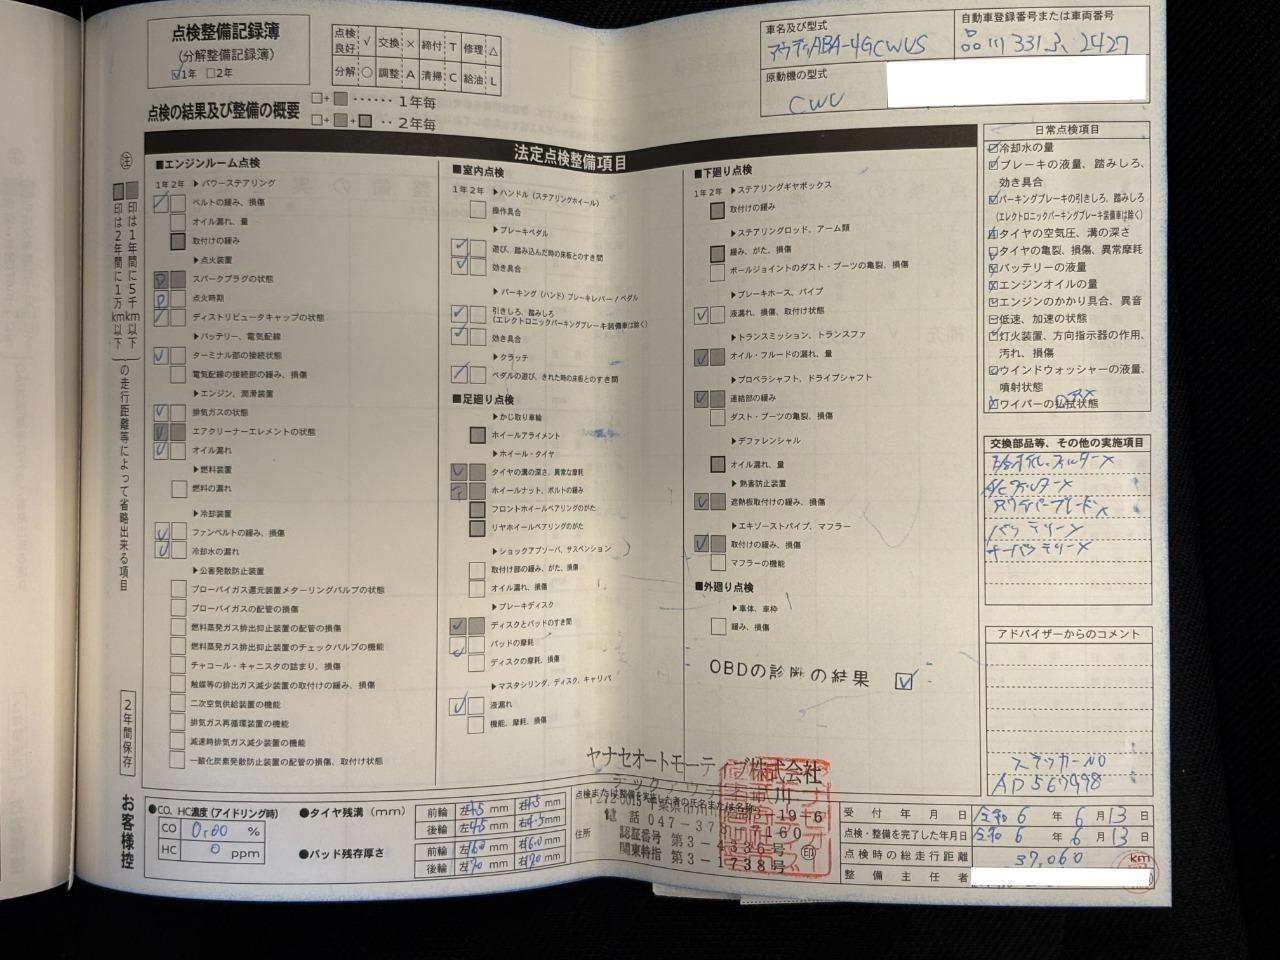 点検整備記録簿
(分解整備記録簿)
☑1年 □2年
点検良好 √ 交換 × 締付 T 修理 △
分解 ○ 調整 A 清掃 C 給油 L
車名及び型式
アウディ ABA-4GCWUS
自動車登録番号または車両番号
品川 331 る 2427
原動機の型式
CWU
点検の結果及び整備の概要
□+■ ‥‥‥ 1年毎
□+■+■ ‥ 2年毎
法定点検整備項目
㊟ ■印は1年間に5千km以下 ■印は2年間に1万km以下 の走行距離等によって省略出来る項目
2年間保存
お客様控
■エンジンルーム点検
1年2年 ▶パワーステアリング
ベルトの緩み、損傷
オイル漏れ、量
取付けの緩み
▶点火装置
スパークプラグの状態
点火時期
ディストリビュータキャップの状態
▶バッテリー、電気配線
ターミナル部の接続状態
電気配線の接続部の緩み、損傷
▶エンジン、潤滑装置
排気ガスの状態
エアクリーナーエレメントの状態
オイル漏れ
▶燃料装置
燃料の漏れ
▶冷却装置
ファンベルトの緩み、損傷
冷却水の漏れ
▶公害発散防止装置
ブローバイガス還元装置メターリングバルブの状態
ブローバイガスの配管の損傷
燃料蒸発ガス排出抑止装置の配管の損傷
燃料蒸発ガス排出抑止装置のチェックバルブの機能
チャコール・キャニスタの詰まり、損傷
触媒等の排出ガス減少装置の取付けの緩み、損傷
二次空気供給装置の機能
排気ガス再循環装置の機能
減速時排気ガス減少装置の機能
一酸化炭素発散防止装置の配管の損傷、取付け状態
■室内点検
1年2年 ▶ハンドル(ステアリングホイール)
操作具合
▶ブレーキペダル
遊び、踏み込んだ時の床板とのすき間
効き具合
▶パーキング(ハンド)ブレーキレバー/ペダル
引きしろ、踏みしろ
(エレクトロニックパーキングブレーキ装備車は除く)
効き具合
▶クラッチ
ペダルの遊び、きれた時の床板とのすき間
■足廻り点検
▶かじ取り車輪
ホイールアライメント
▶ホイール・タイヤ
タイヤの溝の深さ、異常な摩耗
ホイールナット、ボルトの緩み
フロントホイールベアリングのがた
リヤホイールベアリングのがた
▶ショックアブソーバ、サスペンション
取付け部の緩み、がた、損傷
オイル漏れ、損傷
▶ブレーキディスク
ディスクとパッドのすき間
パッドの摩耗
ディスクの摩耗、損傷
▶マスタシリンダ、ディスク、キャリパ
液漏れ
機能、摩耗、損傷
■下廻り点検
1年2年 ▶ステアリングギヤボックス
取付けの緩み
▶ステアリングロッド、アーム類
緩み、がた、損傷
ボールジョイントのダスト・ブーツの亀裂、損傷
▶ブレーキホース、パイプ
液漏れ、損傷、取付け状態
▶トランスミッション、トランスファ
オイル・フルードの漏れ、量
▶プロペラシャフト、ドライブシャフト
連結部の緩み
ダスト・ブーツの亀裂、損傷
▶デファレンシャル
オイル漏れ、量
▶熱害防止装置
遮熱板取付けの緩み、損傷
▶エキゾーストパイプ、マフラー
取付けの緩み、損傷
マフラーの機能
■外廻り点検
▶車体、車枠
緩み、損傷
OBDの診断の結果 ☑
日常点検項目
冷却水の量
ブレーキの液量、踏みしろ、
効き具合
パーキングブレーキの引きしろ、踏みしろ
(エレクトロニックパーキングブレーキ装備車は除く)
タイヤの空気圧、溝の深さ
タイヤの亀裂、損傷、異常摩耗
バッテリーの液量
エンジンオイルの量
エンジンのかかり具合、異音
低速、加速の状態
灯火装置、方向指示器の作用、
汚れ、損傷
ウインドウォッシャーの液量、
噴射状態
ワイパーの払拭状態
交換部品等、その他の実施項目
A/Cフィルター×
ワイパーブレード×
バッテリー×
キーバッテリー×
アドバイザーからのコメント
ステッカーNO
AD567998
●CO、HC濃度(アイドリング時)
CO 0.00 %
HC 0 ppm
●タイヤ残溝(mm)
前輪 左4.5 mm 右4.5 mm
後輪 左4.5 mm 右4.5 mm
●パッド残存厚さ
前輪 左6.0 mm 右6.0 mm
後輪 左7.0 mm 右7.0 mm
点検または整備を実施した者の氏名または名称
住所
ヤナセオートモーティブ株式会社
認証番号 第3-4336号
関東特指 第3-1738号
印
受付年月日 令和6年6月13日
点検・整備を完了した年月日 令和6年6月13日
点検時の総走行距離 37,060 km
整備主任者